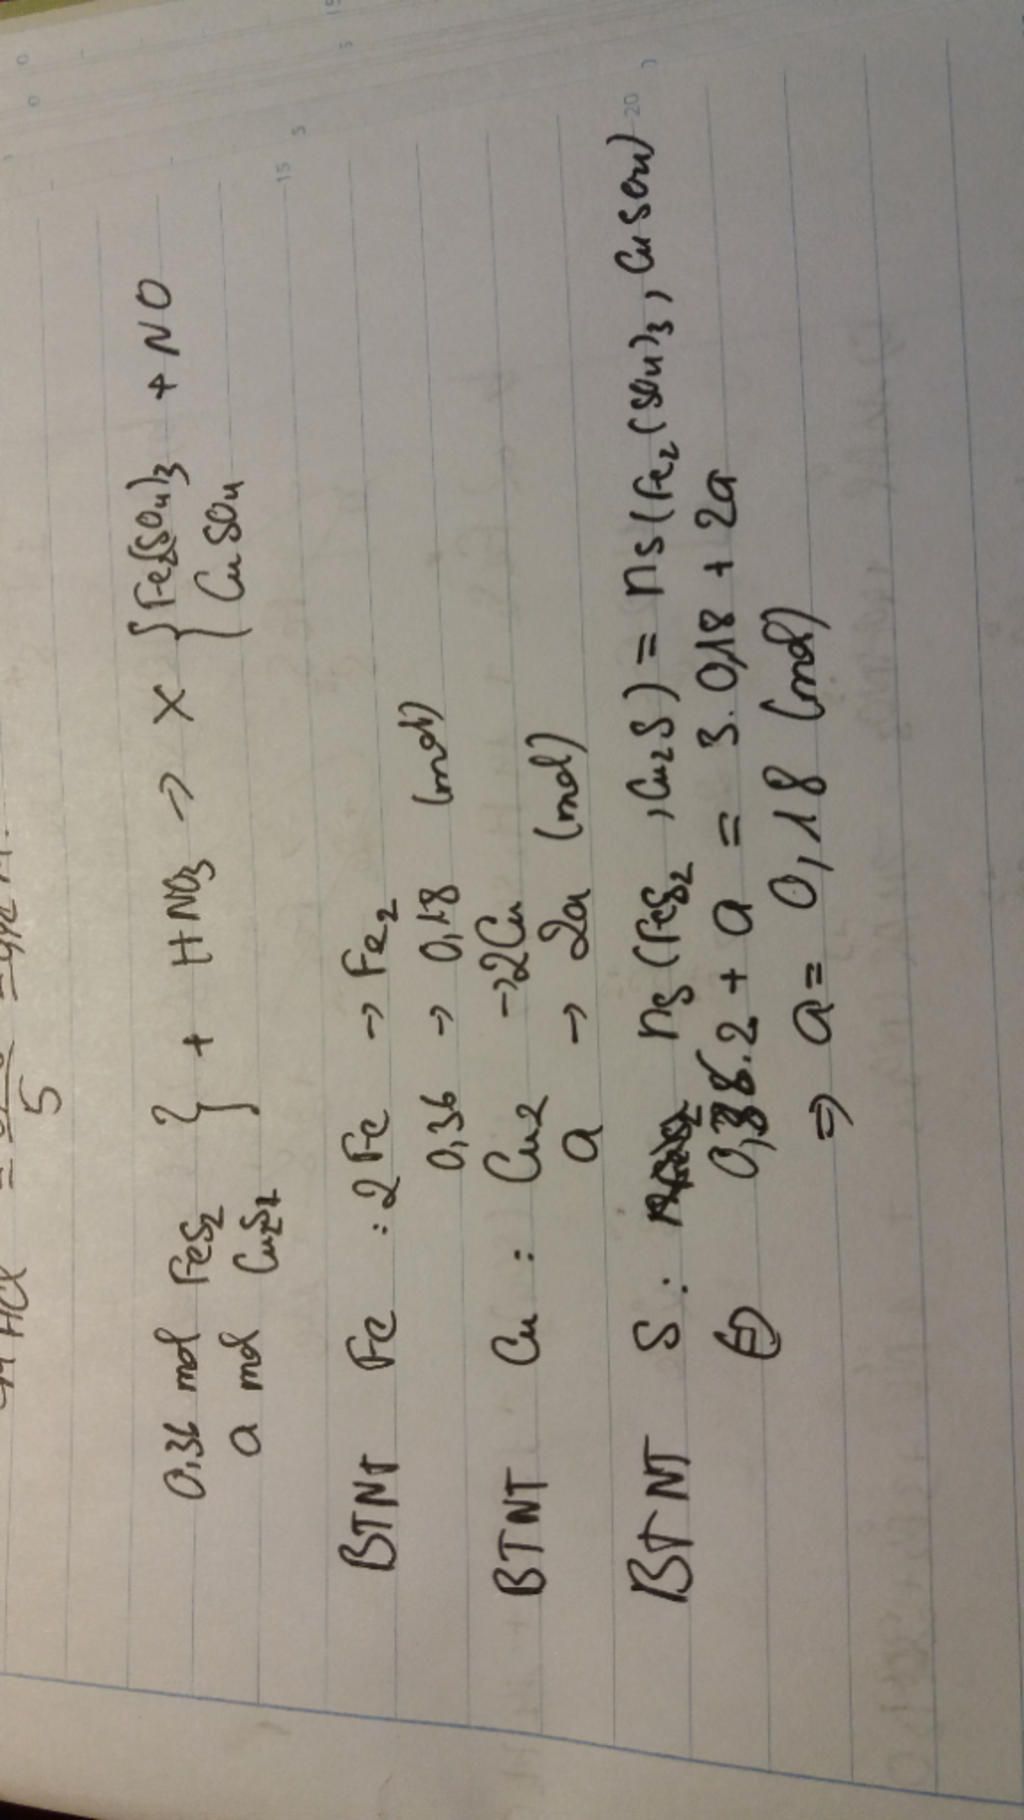 5
0,36 mol FeS2 } + HNO3 → X { Fe2(SO4)3 + NO
a mol Cu2S CuSO4
BTNT Fe : 2Fe → Fe2
0,36 → 0,18 (mol)
BTNT Cu : Cu2 → 2Cu
a → 2a (mol)
BTNT S : nS (FeS2, Cu2S) = nS (Fe2(SO4)3, CuSO4)
⇔ 0,36.2 + a = 3.0,18 + 2a
⇒ a = 0,18 (mol)